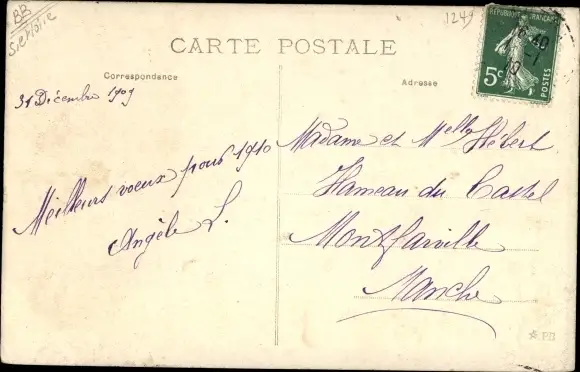 BB
1247
RÉPUBLIQUE FRANÇAISE
5c
POSTES
CARTE POSTALE
Correspondance
Adresse
31 Décembre 1909
Meilleurs voeux pour 1910
Angèle L.
Madame et Melle Hébert
Hameau du Castel
Montfarville
Manche
PB